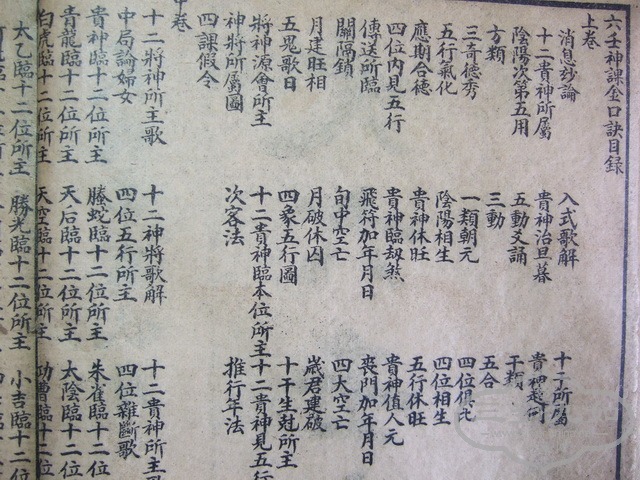 六壬神課金口訣目錄
上卷
消息妙論 入式歌解 十干所屬
十二貴神所屬 貴神治旦暮 貴神起例
陰陽次第五用 五動爻誦 干類
方類 三動 五合
三奇德秀 一類朝元 四位俱比
五行氣化 陰陽相生 四位相生
應期合德 貴神休旺 五行休旺
四位內見五行 貴神臨劫煞 貴神值人元
傳送所臨 飛符加年月日 喪門加年月日
關隔鎖 旬中空亡 四大空亡
月建旺相 月破休囚 歲君建破
五鬼歌日 四象五行圖 十干生尅所主
將神源會所主 十二貴神臨本位所主 十二貴神見五行
神將所屬圖 次客法 推行年法
四課假令
中卷
十二將神所主歌 十二神將歌解 十二貴神所主
中局論婦女 四位五行所主 四位雜斷歌
貴神臨十二位所主 螣蛇臨十二位所主 朱雀臨十二位
青龍臨十二位所主 天后臨十二位所主 太陰臨十二位
白虎臨十二位所主 天空臨十二位所主 功曹臨十二位
太乙臨十二位所主 勝光臨十二位所主 小吉臨十二位